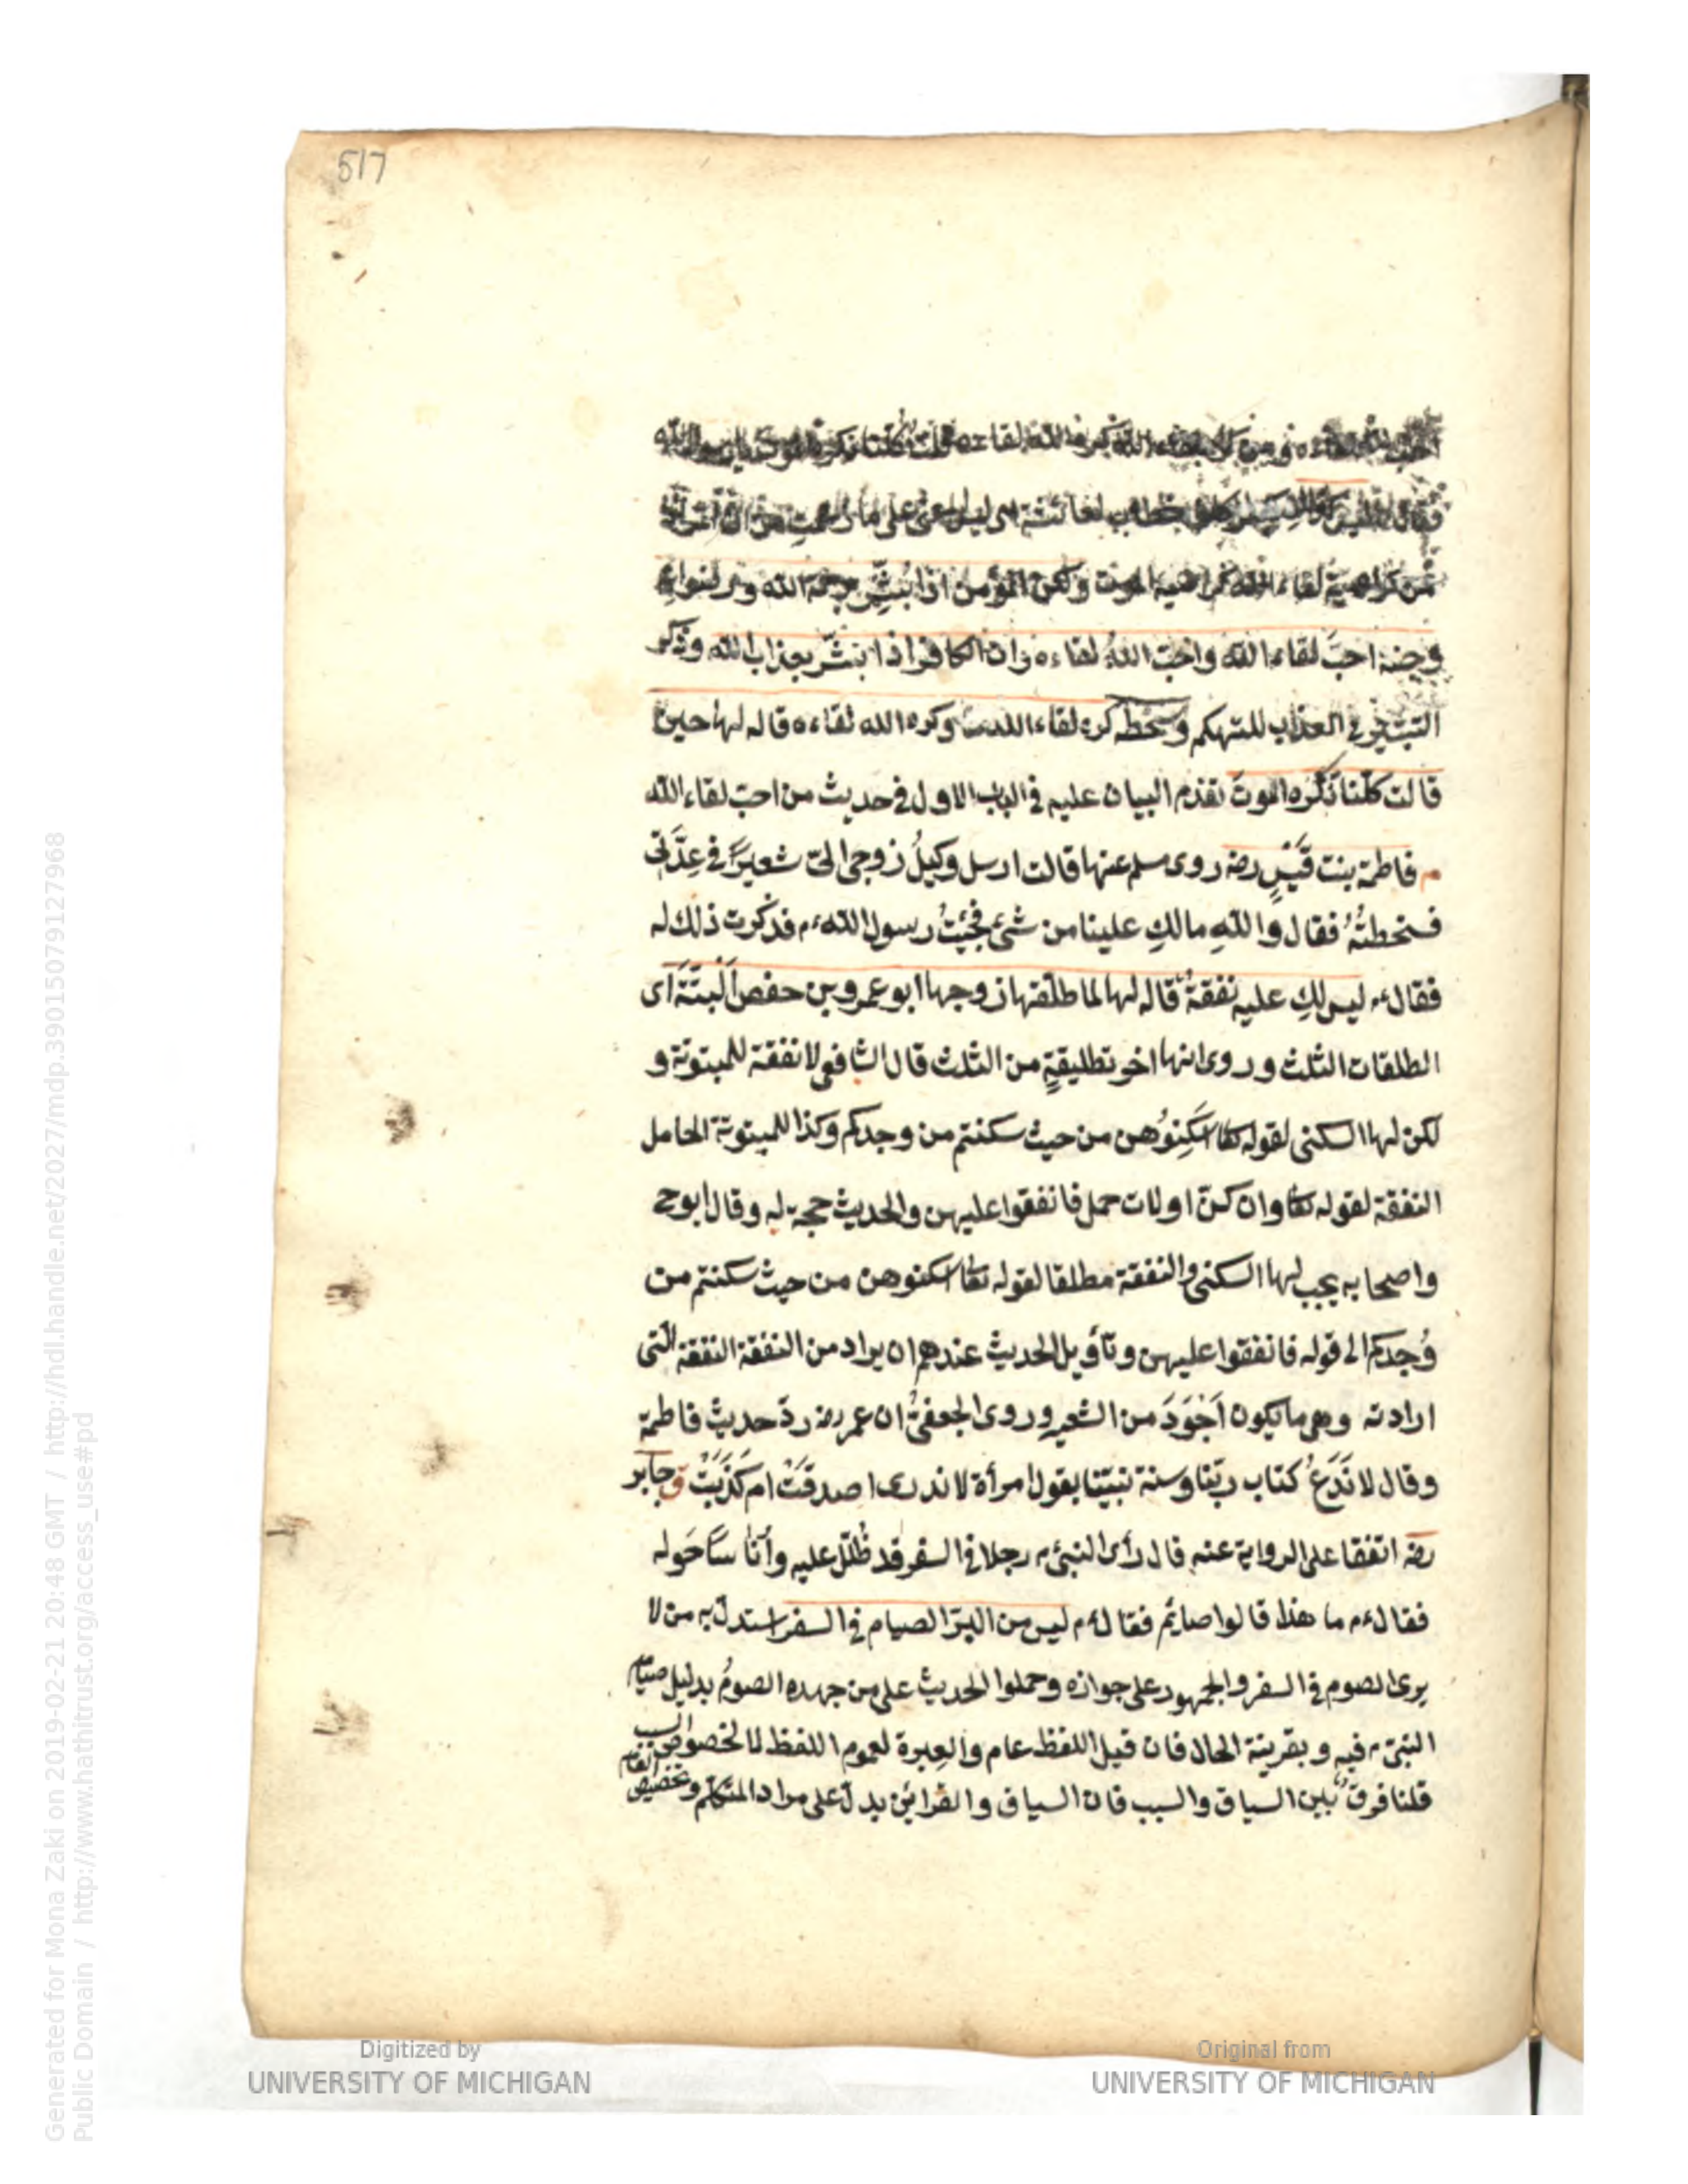 517
احب الله لقاءه ومن كره لقاء الله كره الله لقاءه قلت كلنا نكره الموت يا رسول الله
فقال ليس كذلك خطاب لعائشة اى ليس المعنى على ما زعمت من ان
من كراهية لقاء الله كراهية الموت ولكن المؤمن اذا بُشّر برحمة الله ورضوانه
وجنته احبَّ لقاء الله واحبّ اللهُ لقاءه وان الكافر اذا بشّر بعذاب الله وذكر
التبشير فى العذاب للتهكم وسخطه كره لقاء الله وكره الله لقاءه قاله لها حين
قالت كلّنا نكره الموتَ تقدم البيان عليه فى الباب الاول فى حديث من احبّ لقاء الله
م فاطمة بنت قَيْسٍ رضه روى مسلم عنها قالت ارسل وكيلُ زوجى الىّ شعيرًا فى عِدَّتى
فسخطتُهُ فقال والله مالكِ علينا من شئ فجئتُ رسول الله م فذكرت ذلك له
فقال م ليس لكِ عليه نفقةٌ قاله لها لما طلّقها زوجها ابو عمرو بن حفص البتّة اى
الطلقات الثلث وروى انها اخر تطليقةٍ من الثلث قال الشافعى لا نفقة للمبتوتة و
لكن لها السكنى لقوله تعا اسكِنُوهن من حيث سكنتم من وجدكم وكذا للمبتوتة الحامل
النفقة لقوله تعا وان كنّ اولات حمل فانفقوا عليهن والحديث حجة له وقال ابو ح
واصحابه يجب لها السكنى والنفقة مطلقا لقوله تعا اسكنوهن من حيث سكنتم من
وُجدكم الى قوله فانفقوا عليهن وتأويل الحديث عندهم ان يراد من النفقة النفقة التى
ارادته وهى ما يكون اَجْوَدَ من الشعير وروى الجعفىُّ ان عمر رضه ردّ حديث فاطمة
وقال لا نَدَعُ كتاب ربّنا وسنة نبيّنا بقول امرأة لا ندرى اصدقَتْ ام كَذَبَتْ ق جابر
رضه اتفقا على الرواية عنه قال رأى النبىّ م رجلا فى السفر قد ظُلّل عليه وأُناسًا حَوله
فقال م ما هذا قالوا صائم فقال م ليس من البرّ الصيام فى السفر استدلّ به من لا
يرى الصوم فى السفر والجمهور على جوازه وحملوا الحديث على من جهده الصومُ بدليل صيام
النبىّ م فيه وبقرينة الحال فان قيل اللفظ عام والعِبرة لعموم اللفظ لا لخصوص السبب
قلنا فرقٌ بين السياق والسبب فان السياق والقرائن يدلّ على مراد المتكلم وتخصيص العام
Generated for Mona Zaki on 2019-02-21 20:48 GMT / http://hdl.handle.net/2027/mdp.39015079127968
Public Domain / http://www.hathitrust.org/access_use#pd
Digitized by
UNIVERSITY OF MICHIGAN
Original from
UNIVERSITY OF MICHIGAN